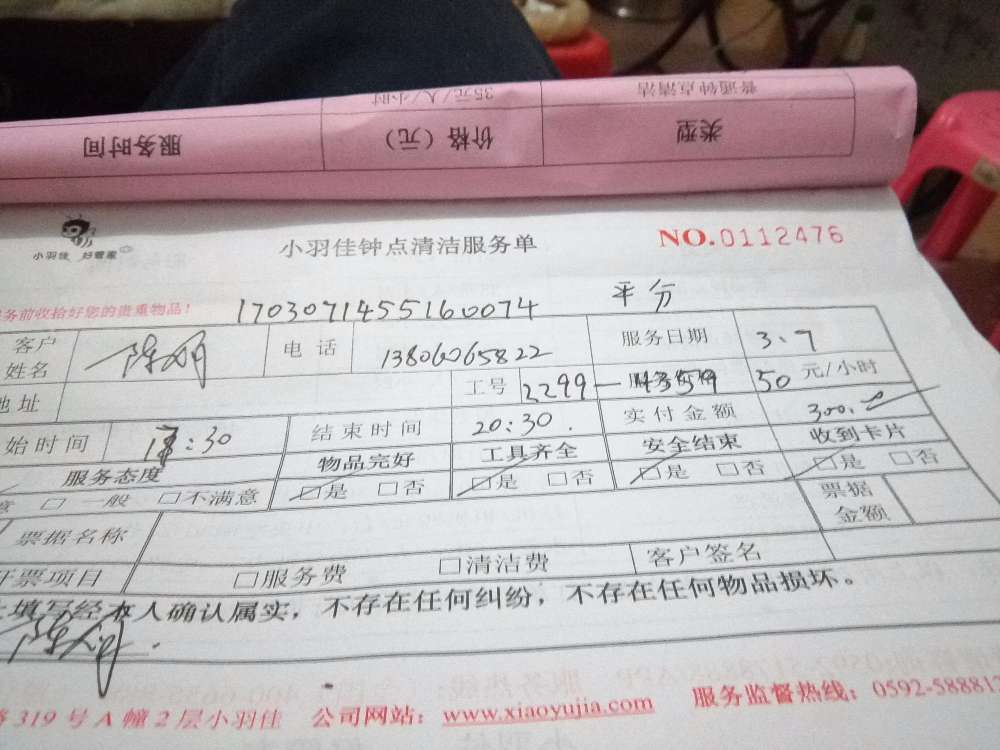 普通钟点清洁 35元/人/小时
类型 价格（元） 服务时间
小羽佳 好管家
小羽佳钟点清洁服务单
NO.0112476
务前收拾好您的贵重物品！
17030714551600074 平分
客户姓名 电话 13806065822 服务日期 3.7
地址 工号 2299-4359 50 元/小时
始时间 :30 结束时间 20:30. 实付金额 300.
服务态度 物品完好 工具齐全 安全结束 收到卡片
意 □一般 □不满意 □是 □否 □是 □否 □是 □否 □是 □否
票据名称 票据金额
开票项目 □服务费 □清洁费 客户签名
上填写经本人确认属实，不存在任何纠纷，不存在任何物品损坏。
319号A幢2层小羽佳 公司网站：www.xiaoyujia.com 服务监督热线：0592-588815